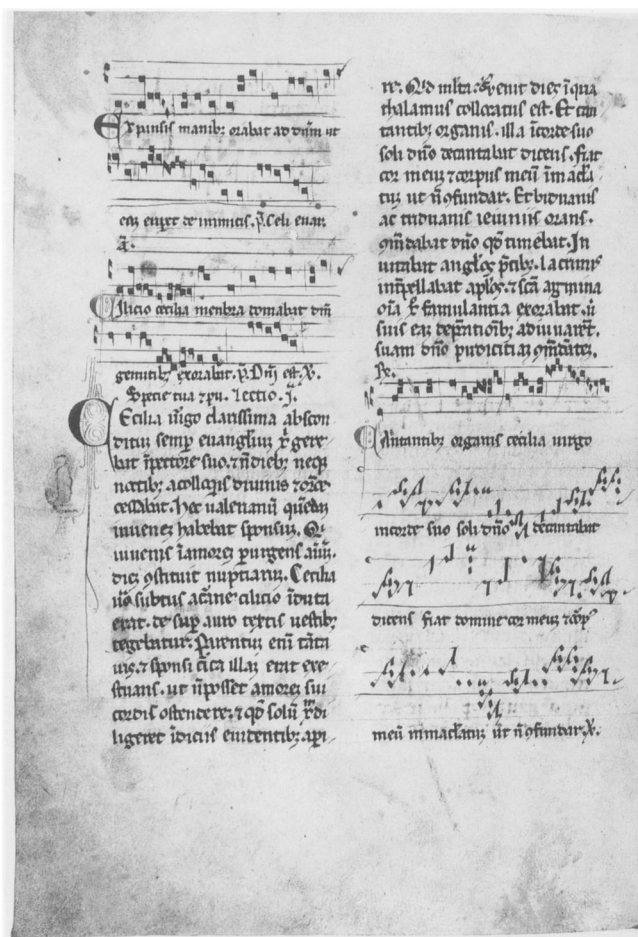 Expansis manib; orabat ad dn̄m ut
eā eriperet de inimicis. p̄. Celi enar.
a̅.
Cilicio cecilia menbra domabat dm̄
gemitib; exorabat. p̄. Dn̄i est. ℣.
Specie tua ⁊ pu. Lectio. j.
Cecilia v̓igo clarissima abscon
ditū semp̄ euangl̓iū xp̄i gere
bat ī pectore suo. ⁊ n̄ dieb; neq;
noctib; a colloq̓is diuinis ⁊ or̄one
cessabat. Hec ualerianū quēdā
iuuenē habebat sponsū. Q̓
iuuenis ī amorē p̄ urgens aīm̄.
diē ꝯstituit nuptiarū. Cecilia
u̓o subtus a carne cilicio īduta
erat. de sup̄ auro textis uestib;
tegebatur. Parentū enī tāta
uis. ⁊ sponsi c̓ca illā erat exe
stuans. ut n̄ posset amorē sui
cordis ostendere. ⁊ qd̓ solū xp̄m di
ligeret īdiciis euidentib; api
re. Qd̓ multa. Uenit dies ī qua
thalamus collocatus est. Et can
tantib; organis. illa ī corde suo
soli dn̄o decantabat dicens. fiat
cor meū ⁊ corpus meū īmacla
tū ut n̄ ꝯfundar. Et biduanis
ac triduanis ieiuniis orans.
ꝯmdabat dn̄o qd̓ timebat. In
uitabat angl̓os p̄cib;. lacrimis
int̓pellabat apl̓os. ⁊ sc̄a agmina
oīa xp̄i famulantia exorabat. ut
suis eā dep̄cationib; adiuuarēt.
suam dn̄o pudicitiā ꝯmdātē.
℞.
Cantantibus organis cecilia uirgo
in corde suo soli dn̄o decantabat
dicens fiat domine cor meū ⁊ corp̓
meū inmaclatū ut n̄ ꝯfundar. ℣.